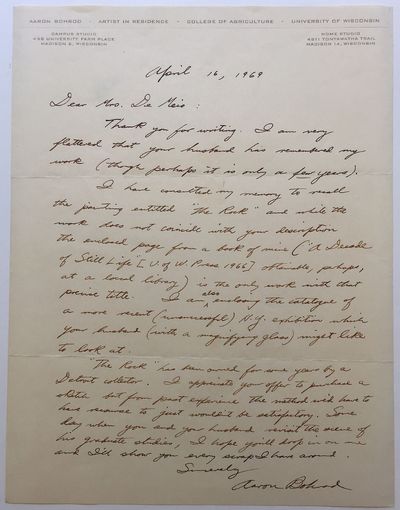 AARON BOHROD · ARTIST IN RESIDENCE · COLLEGE OF AGRICULTURE · UNIVERSITY OF WISCONSIN
CAMPUS STUDIO
432 UNIVERSITY FARM PLACE
MADISON 5, WISCONSIN
HOME STUDIO
4811 TONYAWATHA TRAIL
MADISON 14, WISCONSIN
April 16, 1969
Dear Mrs. De Meis :
Thank you for writing. I am very
flattered that your husband has remembered my
work (though perhaps it is only a few years).
I have consulted my memory to recall
the painting entitled "the Rock" and while the
work does not coincide with your description
the enclosed page from a book of mine ("A Decade
of Still Life" [U. of W. Press 1966] obtainable, perhaps,
at a local library) is the only work with that
precise title. I am also enclosing the catalogue of
a more recent (unsuccessful) N.Y. exhibition which
your husband (with a magnifying glass) might like
to look at.
"The Rock" has been owned for some years by a
Detroit collector. I appreciate your offer to purchase a
sketch but from past experience the method we'd have to
have recourse to just wouldn't be satisfactory. Some
day when you and your husband revisit the scene of
his graduate studies, I hope you'll drop in on me
and I'll show you every scrap I have around.
Sincerely
Aaron Bohrod